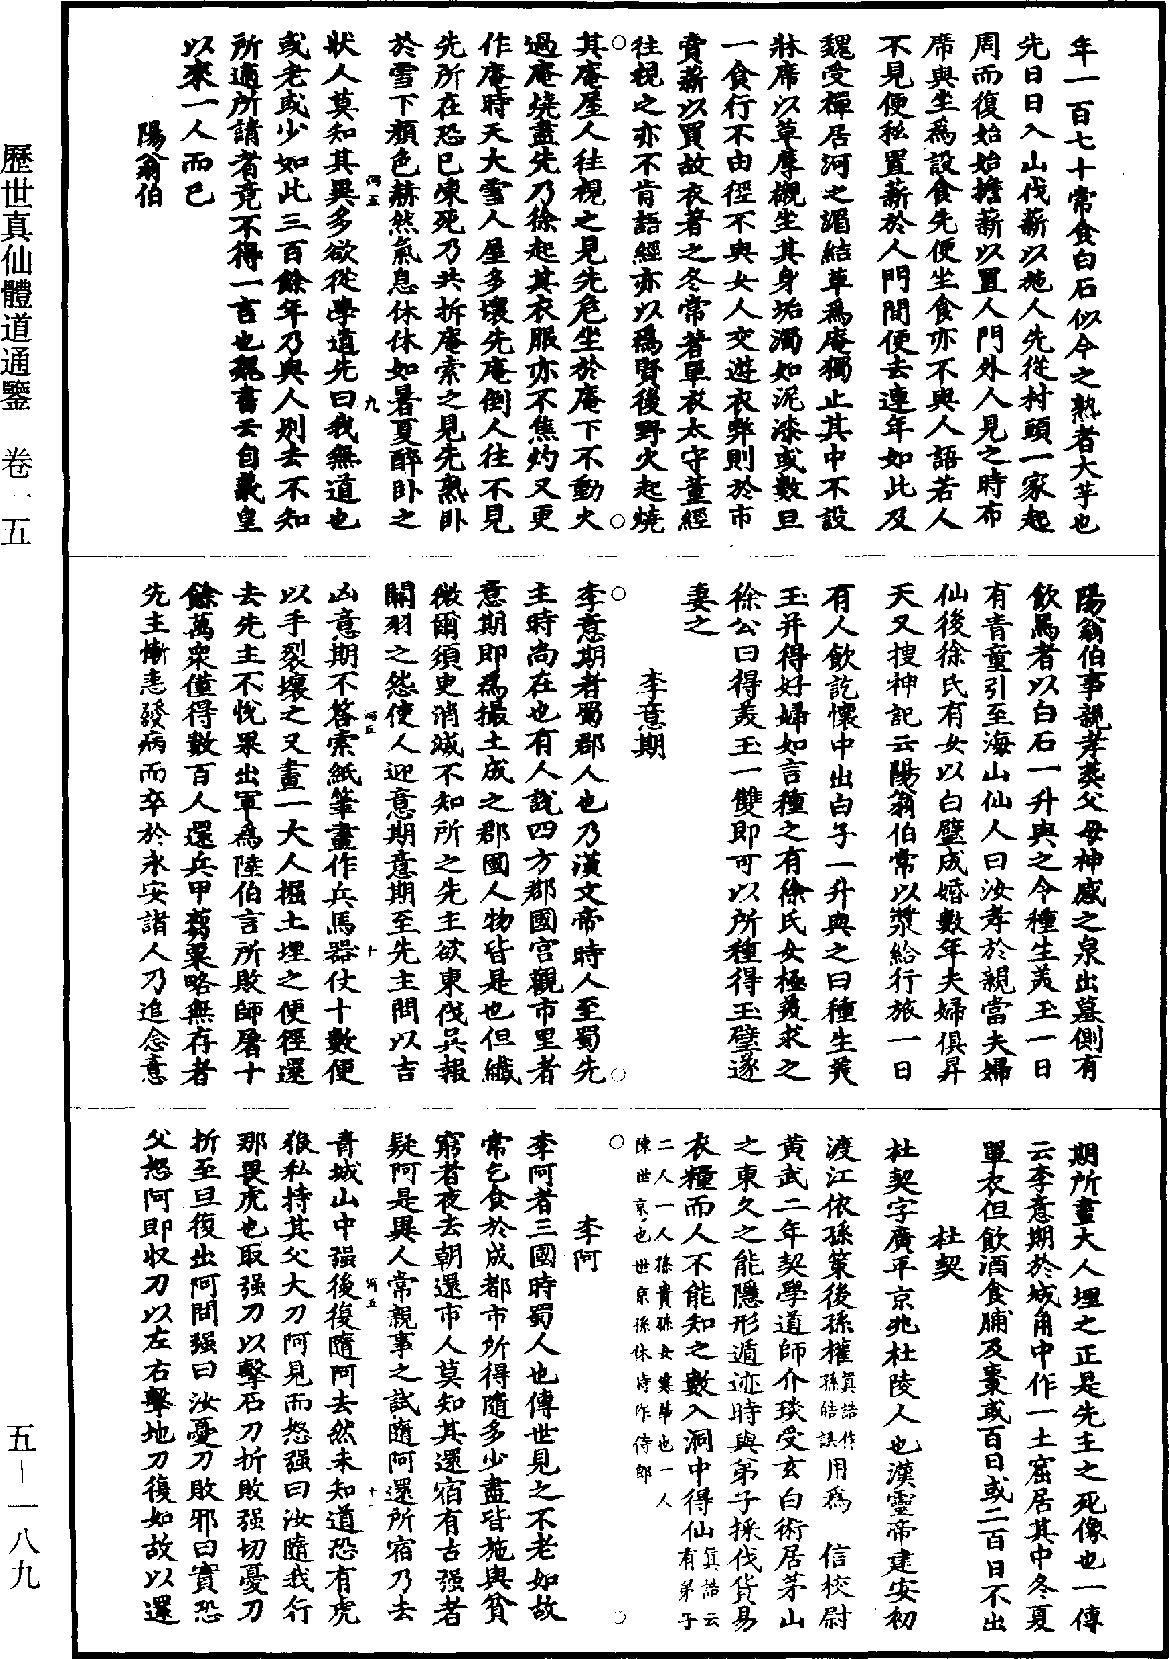 歷世真仙體道通鑒　卷一五
五－一八九
年一百七十常食白石似今之熟者大芋也
先日日入山伐薪以施人先從村頭一家起
周而復始始擔薪以置人門外人見之時布
席與坐爲設食先便坐食亦不與人語若人
不見便私置薪於人門間便去連年如此及
魏受禪居河之湄結草爲庵獨止其中不設
牀席以草摩櫬坐其身垢濁如泥漆或數旦
一食行不由徑不與女人交遊衣弊則於市
賣薪以買故衣著之冬常著單衣太守董經
往視之亦不肯語經亦以爲賢後野火起燒
其庵屋人往視之見先危坐於庵下不動火
過庵燒盡先乃徐起其衣服亦不焦灼又更
作庵時天大雪人屋多壞先庵倒人往不見
先所在恐已凍死乃共折庵索之見先熟卧
於雪下顏色赫然氣息休休如暑夏醉卧之
狀人莫知其異多欲從學道先曰我無道也
或老或少如此三百餘年乃與人別去不知
所適所請者竟不得一言也魏書云自羲皇
以來一人而已
陽翁伯
陽翁伯事親孝葬父母神感之泉出墓側有
飲馬者以白石一升與之令種生美玉一日
有青童引至海山仙人曰汝孝於親當夫婦
仙後徐氏有女以白璧成婚數年夫婦俱昇
天又搜神記云陽翁伯常以漿給行旅一日
有人飲訖懷中出白子一升與之曰種生美
玉并得好婦如言種之有徐氏女極美求之
徐公曰得美玉一雙即可以所種得玉璧遂
妻之
李意期
李意期者蜀郡人也乃漢文帝時人至蜀先
主時尚在也有人說四方郡國宮觀市里者
意期即爲撮土成之郡國人物皆是也但纖
微爾須臾消滅不知所之先主欲東伐吳報
關羽之怨使人迎意期意期至先主問以吉
凶意期不荅索紙筆畫作兵馬器仗十數便
以手裂壞之又畫一大人掘土埋之便徑還
去先主不悅果出軍爲陸伯言所敗師屠十
餘萬衆僅得數百人還兵甲芻粟略無存者
先主慚恚發病而卒於永安諸人乃追念意
期所畫大人埋之正是先主之死像也一傳
云李意期於城角中作一土窟居其中冬夏
單衣但飲酒食脯及棗或百日或二百日不出
杜契
杜契字廣平京兆杜陵人也漢靈帝建安初
渡江依孫策後孫權真誥作孫皓誤用爲　信校尉
黃武二年契學道師介琰受玄白術居茅山
之東久之能隱形遁迹時與弟子採伐貨易
衣糧而人不能知之數入洞中得仙真誥云有弟子
二人一人孫賁孫女寒華也一人
陳世京也世京孫休時作侍郎
李阿
李阿者三國時蜀人也傳世見之不老如故
常乞食於成都市所得隨多少盡皆施與貧
窮者夜去朝還市人莫知其還宿有古强者
疑阿是異人常親事之試隨阿還所宿乃去
青城山中强後復隨阿去然未知道恐有虎
狼私持其父大刀阿見而怒强曰汝隨我行
那畏虎也取强刀以擊石刀折敗强切憂刀
折至旦復出阿問强曰汝憂刀敗邪曰實恐
父怒阿即収刀以左右擊地刀復如故以還